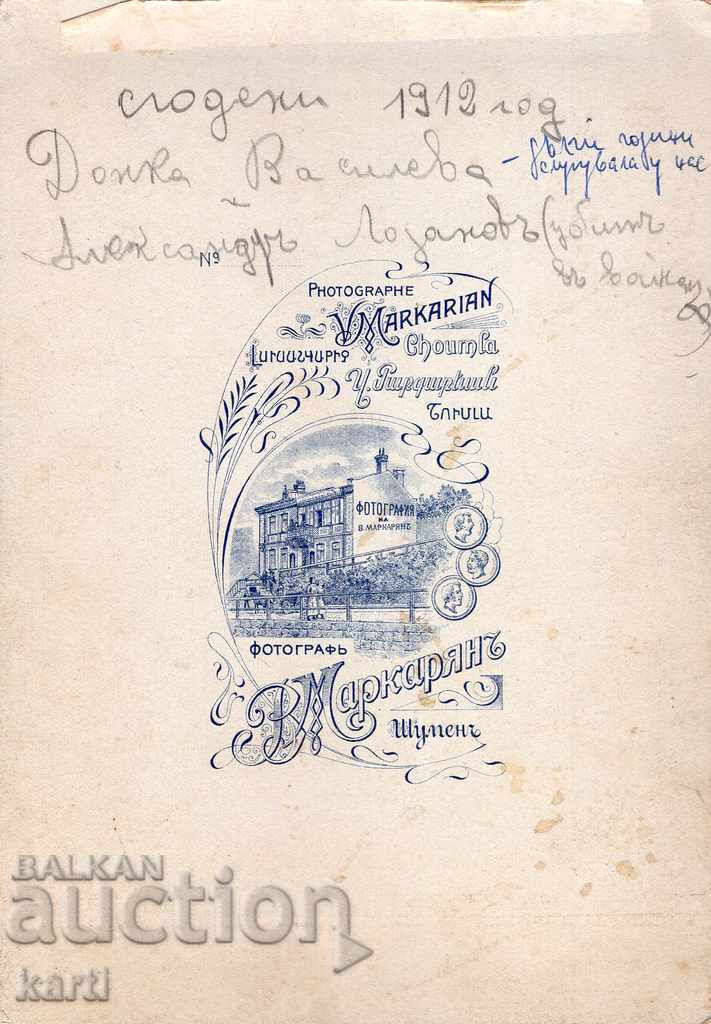 сгодени 1912 год
Донка Василева - дълги години
слугувала у нас
Александръ Лозановъ (убитъ
въ
№
PHOTOGRAPHE
V. MARKARIAN
Choumla
ԼՈՒՍԱՆԿԱՐԻՉ
Վ. Մարգարեան
ՇՈՒՄԼԱ
ФОТОГРАФИЯ
НА
В. МАРКАРЯНЪ
ФОТОГРАФЬ
В. Маркарянъ
Шуменъ
BALKAN
auction
karti